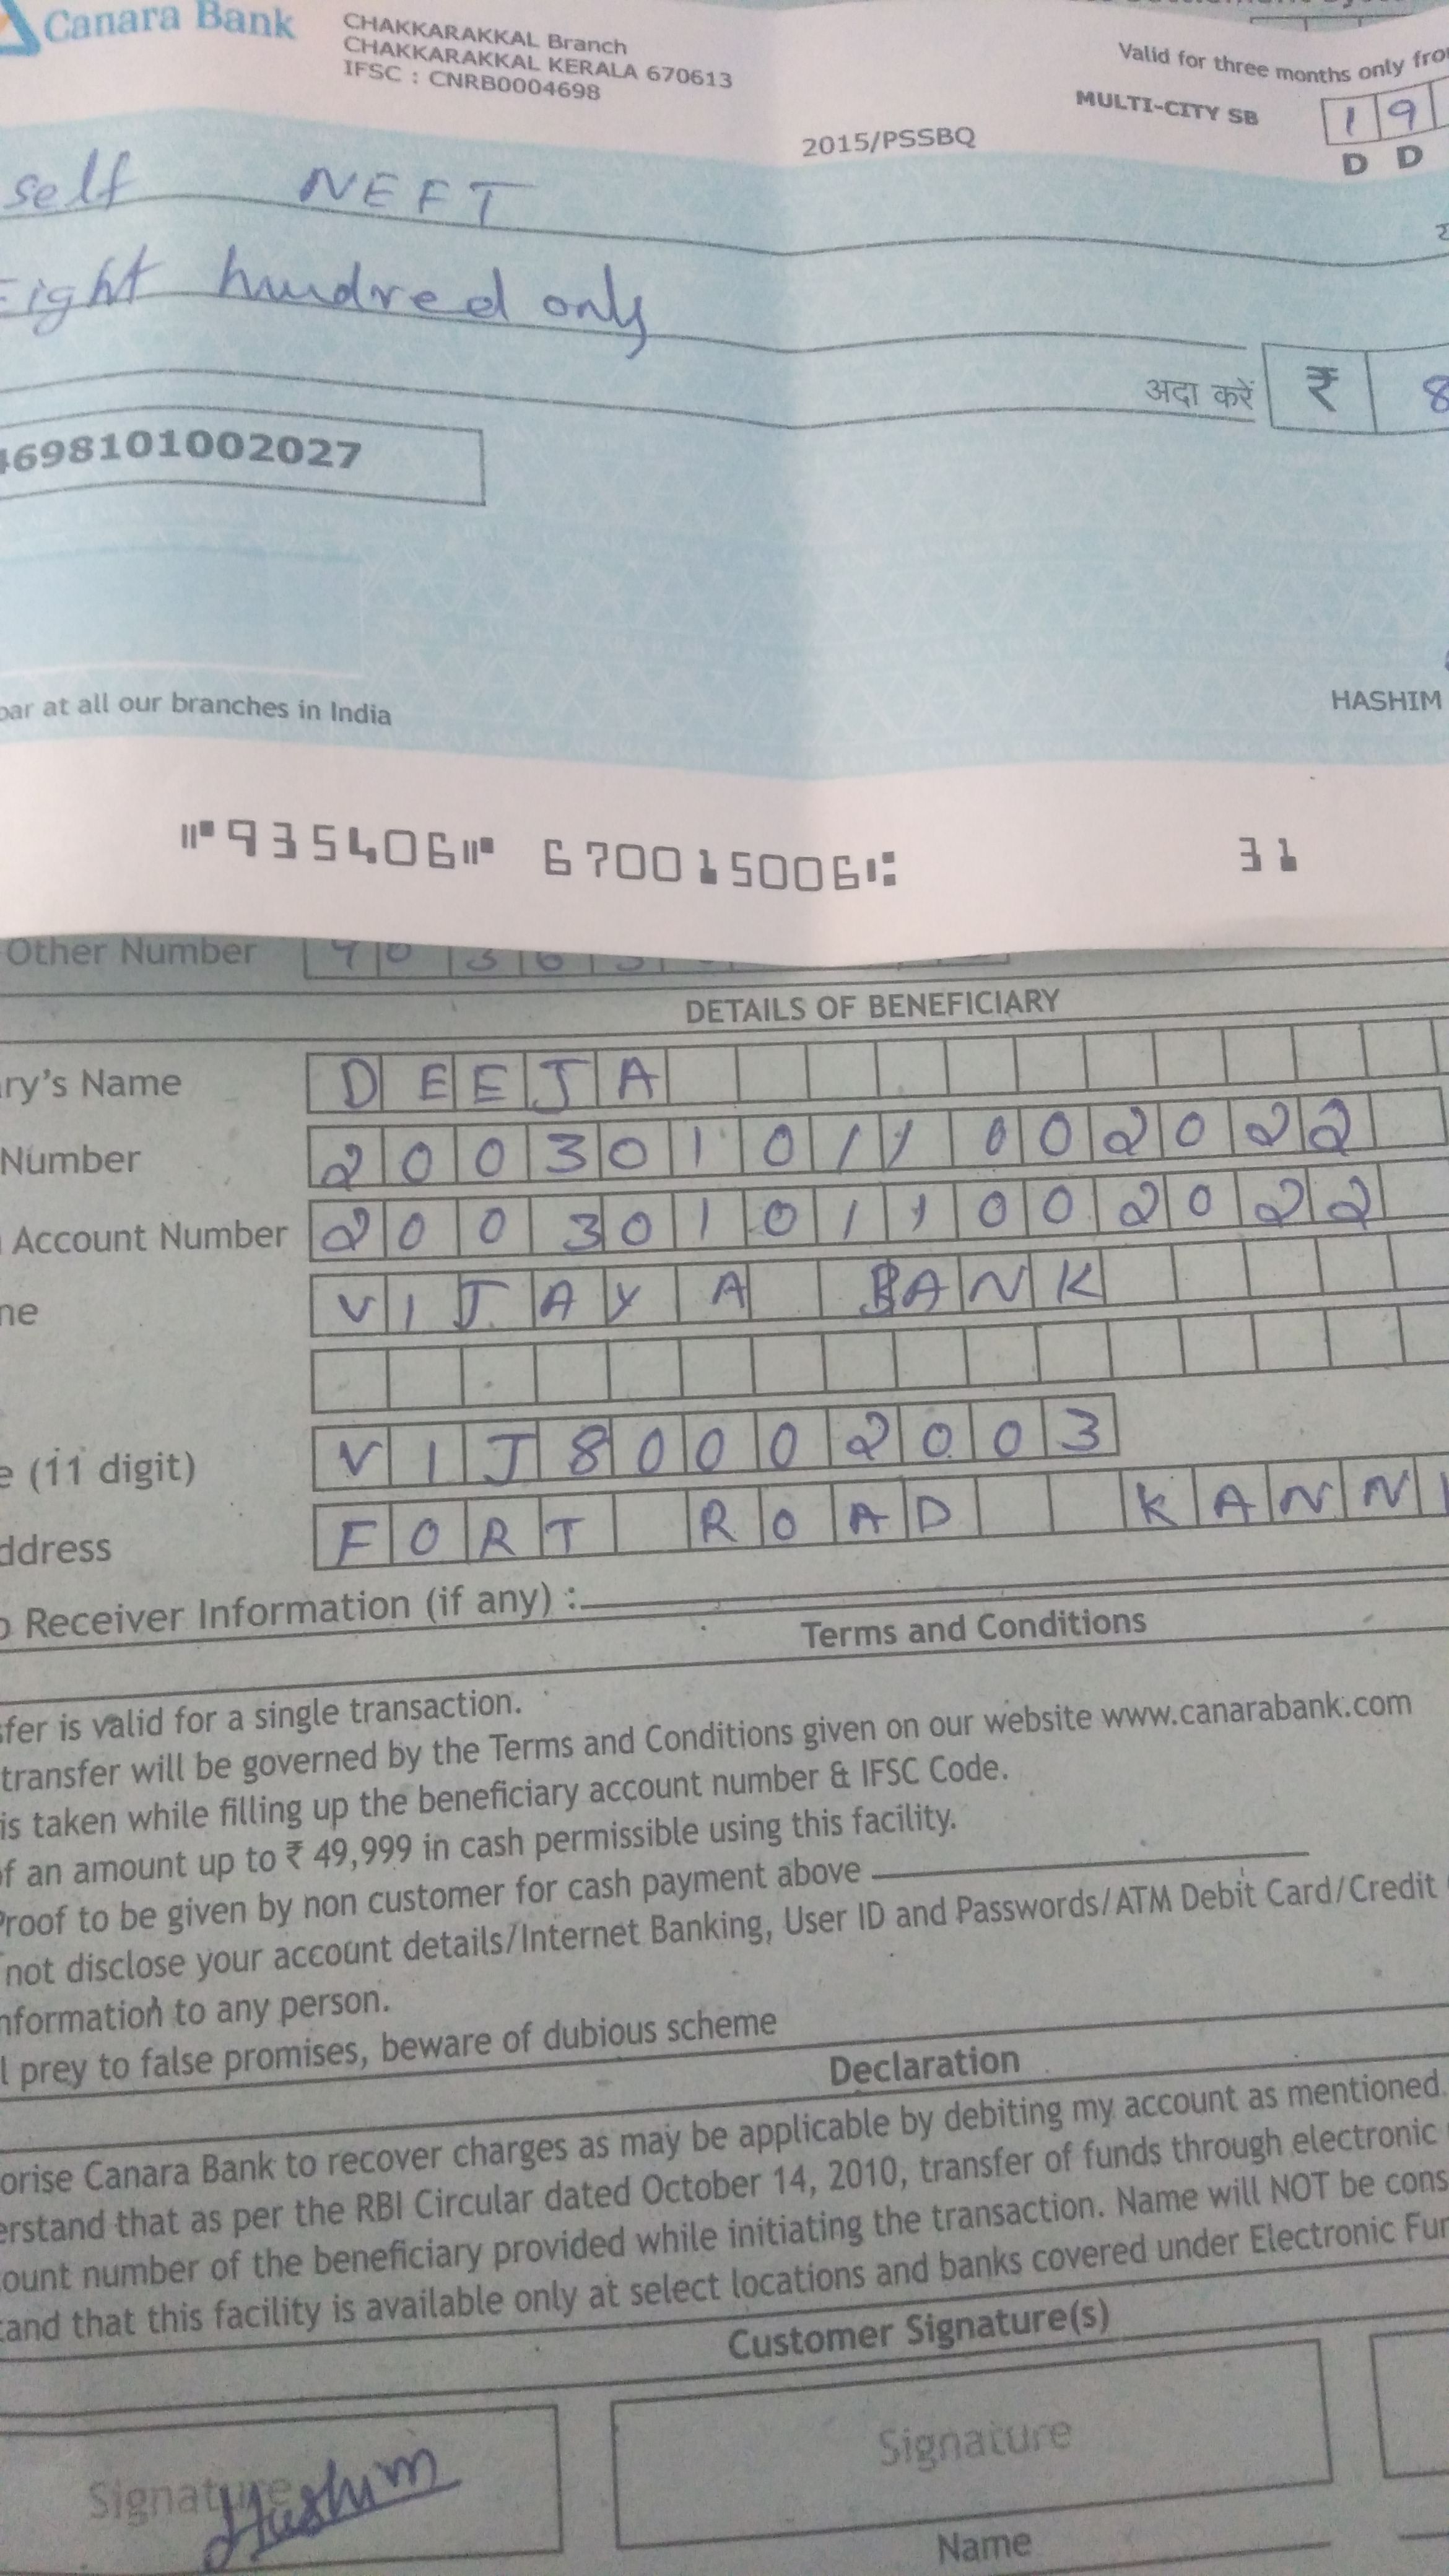 Canara Bank
CHAKKARAKKAL Branch
CHAKKARAKKAL KERALA 670613
IFSC : CNRB0004698
Valid for three months only fro
MULTI-CITY SB
1 9
D D
2015/PSSBQ
self NEFT
Eight hundred only
अदा करें ₹ 8
4698101002027
par at all our branches in India
HASHIM
⑈935406⑈ 670015006⑆ 31
Other Number
DETAILS OF BENEFICIARY
ry's Name DEEJA
Number 200301011002022
Account Number 200301011002022
me VIJAYA BANK
e (11 digit) VIJ80002003
ddress FORT ROAD KANN
o Receiver Information (if any) :
Terms and Conditions
sfer is valid for a single transaction.
transfer will be governed by the Terms and Conditions given on our website www.canarabank.com
is taken while filling up the beneficiary account number & IFSC Code.
of an amount up to ₹ 49,999 in cash permissible using this facility.
Proof to be given by non customer for cash payment above
not disclose your account details/Internet Banking, User ID and Passwords/ATM Debit Card/Credit
nformation to any person.
l prey to false promises, beware of dubious scheme
Declaration
orise Canara Bank to recover charges as may be applicable by debiting my account as mentioned.
erstand that as per the RBI Circular dated October 14, 2010, transfer of funds through electronic
ount number of the beneficiary provided while initiating the transaction. Name will NOT be cons
tand that this facility is available only at select locations and banks covered under Electronic Fun
Customer Signature(s)
Signature Signature
Hashim
Name